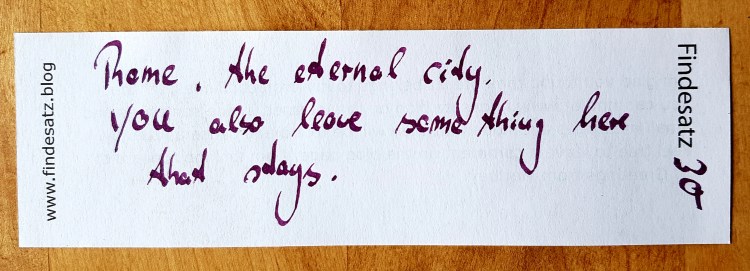 www.findesatz.blog
Rome, the eternal city.
you also leave something here
that stays.
Findesatz 30